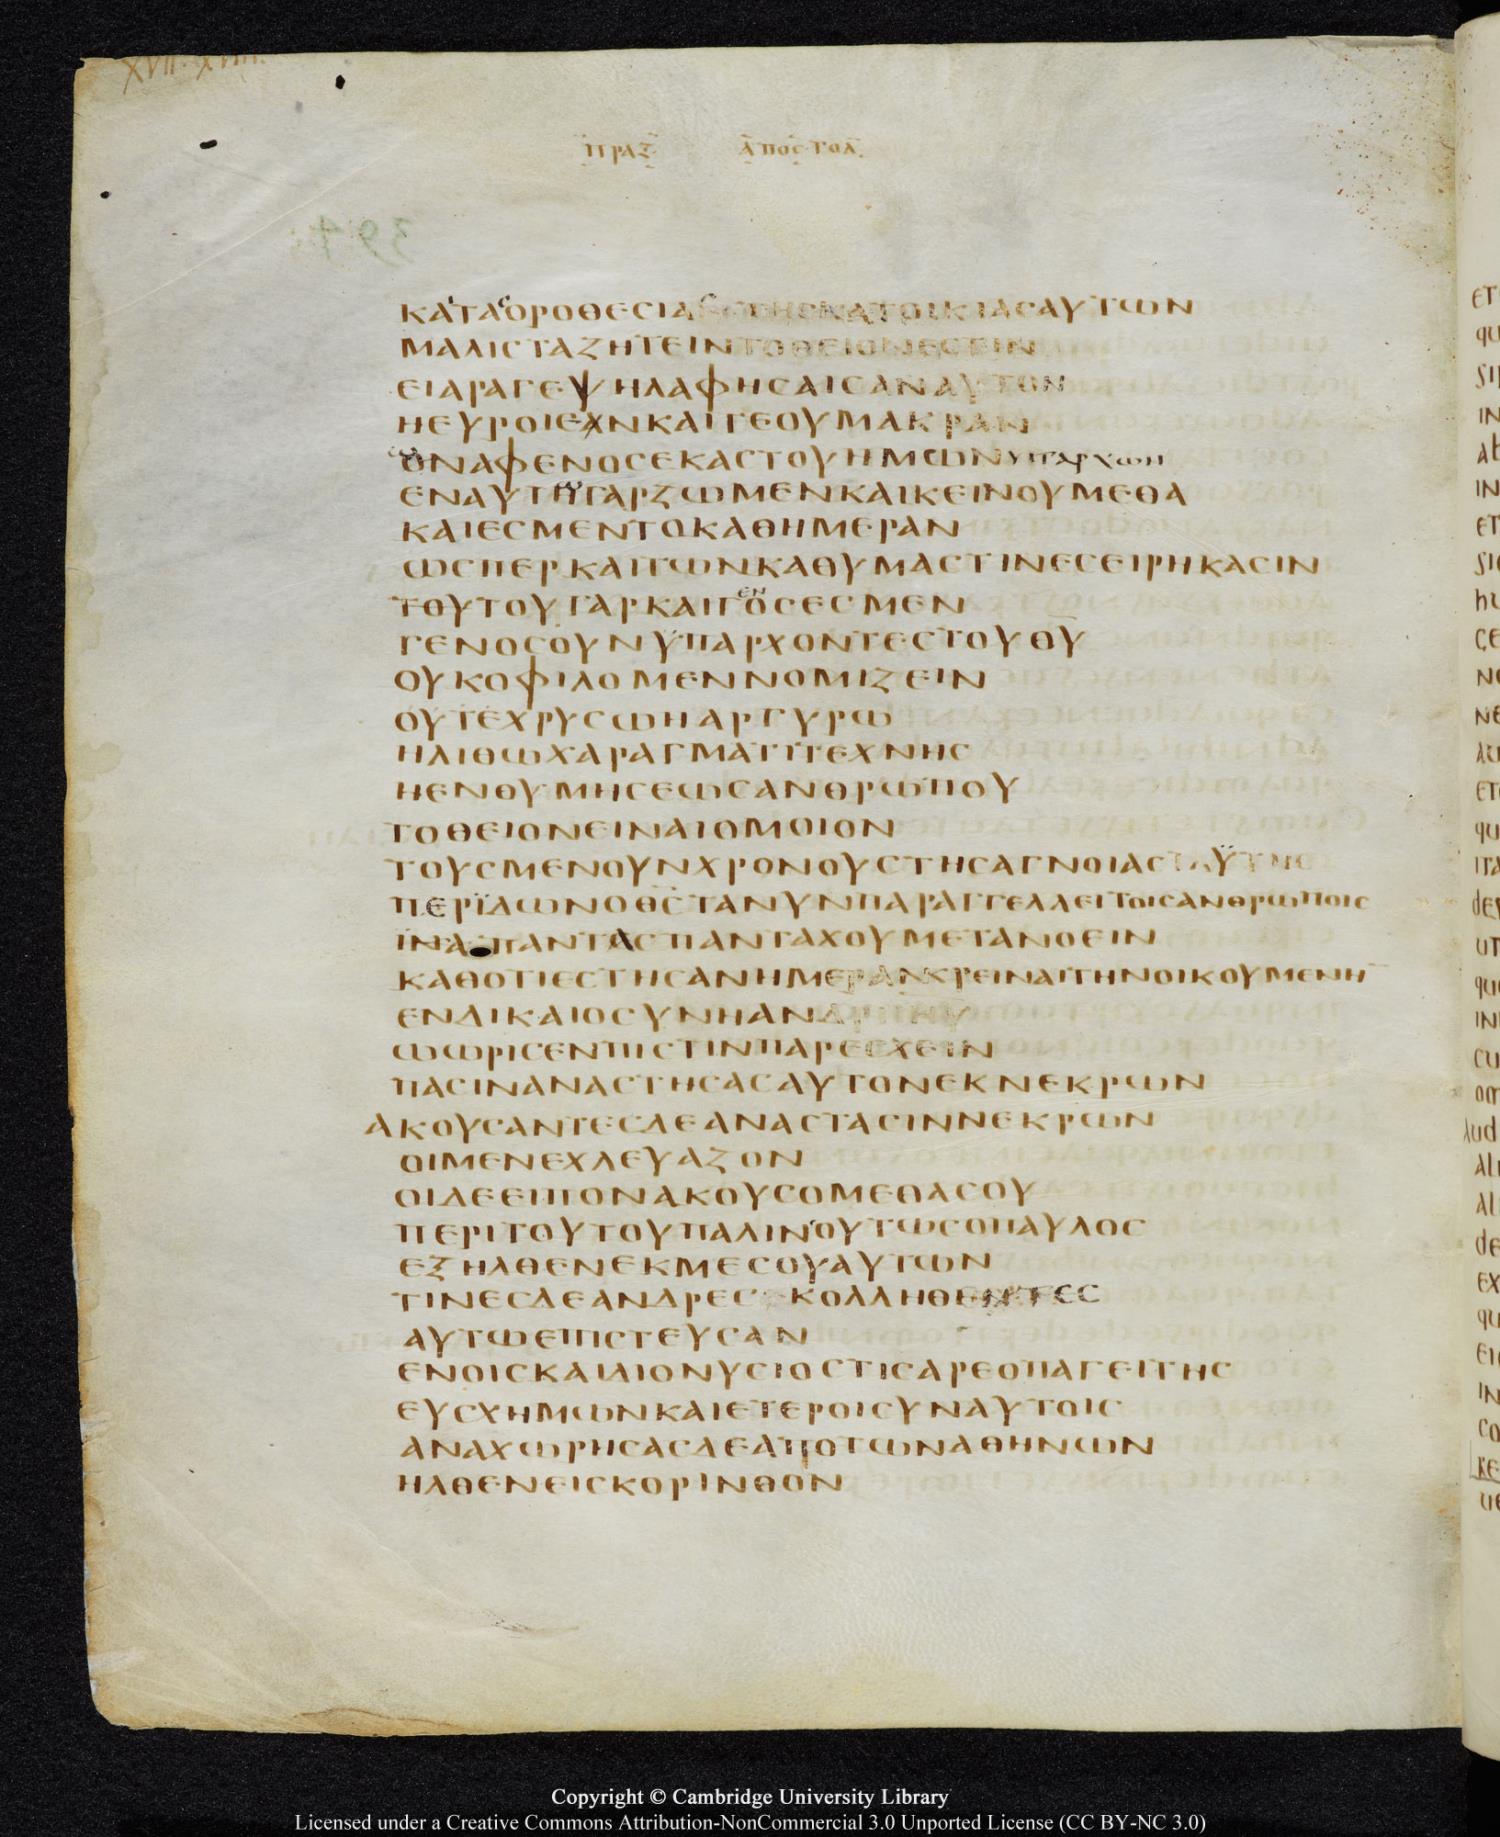 XVII·XVIII·
ΠΡΑΞ ΑΠΟΣΤΟΛ
ΚΑΤΑΟΡΟΘΕϹΙΑϹΤΗϹΚΑΤΟΙΚΙΑϹΑΥΤΩΝ
ΜΑΛΙϹΤΑΖΗΤΕΙΝΤΟΘΕΙΟΝΕϹΤΙΝ
ΕΙΑΡΑΓΕΨΗΛΑΦΗϹΑΙϹΑΝΑΥΤΟΝ
ΗΕΥΡΟΙΕΑΝΚΑΙΓΕΟΥΜΑΚΡΑΝ
ΟΝΑΦΕΝΟϹΕΚΑϹΤΟΥΗΜΩΝΥΠΑΡΧΩΝ
ΕΝΑΥΤΗΓΑΡΖΩΜΕΝΚΑΙΚΕΙΝΟΥΜΕΘΑ
ΚΑΙΕϹΜΕΝΤΟΚΑΘΗΜΕΡΑΝ
ΩϹΠΕΡΚΑΙΤΩΝΚΑΘΥΜΑϹΤΙΝΕϹΕΙΡΗΚΑϹΙΝ
ΤΟΥΤΟΥΓΑΡΚΑΙΓΕΝΟϹΕϹΜΕΝ
ΓΕΝΟϹΟΥΝΥΠΑΡΧΟΝΤΕϹΤΟΥΘΥ
ΟΥΚΟΦΙΛΟΜΕΝΝΟΜΙΖΕΙΝ
ΟΥΤΕΧΡΥϹΩΗΑΡΓΥΡΩ
ΗΛΙΘΩΧΑΡΑΓΜΑΤΙΤΕΧΝΗϹ
ΗΕΝΘΥΜΗϹΕΩϹΑΝΘΡΩΠΟΥ
ΤΟΘΕΙΟΝΕΙΝΑΙΟΜΟΙΟΝ
ΤΟΥϹΜΕΝΟΥΝΧΡΟΝΟΥϹΤΗϹΑΓΝΟΙΑϹΤΑΥΤΗϹ
ΠΕΡΪΔΩΝΟΘϹΤΑΝΥΝΠΑΡΑΓΓΕΛΛΕΙΤΟΙϹΑΝΘΡΩΠΟΙϹ
ΙΝΑΠΑΝΤΑϹΠΑΝΤΑΧΟΥΜΕΤΑΝΟΕΙΝ
ΚΑΘΟΤΙΕϹΤΗϹΑΝΗΜΕΡΑΝΚΡΕΙΝΑΙΤΗΝΟΙΚΟΥΜΕΝΗ
ΕΝΔΙΚΑΙΟϹΥΝΗΑΝΔΡΙΙΗΥ
ΩΩΡΙϹΕΝΠΙϹΤΙΝΠΑΡΕϹΧΕΙΝ
ΠΑϹΙΝΑΝΑϹΤΗϹΑϹΑΥΤΟΝΕΚΝΕΚΡΩΝ
ΑΚΟΥϹΑΝΤΕϹΔΕΑΝΑϹΤΑϹΙΝΝΕΚΡΩΝ
ΟΙΜΕΝΕΧΛΕΥΑΖΟΝ
ΟΙΔΕΕΙΠΟΝΑΚΟΥϹΟΜΕΘΑϹΟΥ
ΠΕΡΙΤΟΥΤΟΥΠΑΛΙΝΟΥΤΩϹΟΠΑΥΛΟϹ
ΕΞΗΛΘΕΝΕΚΜΕϹΟΥΑΥΤΩΝ
ΤΙΝΕϹΔΕΑΝΔΡΕϹΚΟΛΛΗΘΕΝΤΕϹ
ΑΥΤΩΕΠΙϹΤΕΥϹΑΝ
ΕΝΟΙϹΚΑΙΔΙΟΝΥϹΙΟϹΤΙϹΑΡΕΟΠΑΓΕΙΤΗϹ
ΕΥϹΧΗΜΩΝΚΑΙΕΤΕΡΟΙϹΥΝΑΥΤΟΙϹ
ΑΝΑΧΩΡΗϹΑϹΔΕΑΠΟΤΩΝΑΘΗΝΩΝ
ΗΛΘΕΝΕΙϹΚΟΡΙΝΘΟΝ
Copyright © Cambridge University Library
Licensed under a Creative Commons Attribution-NonCommercial 3.0 Unported License (CC BY-NC 3.0)